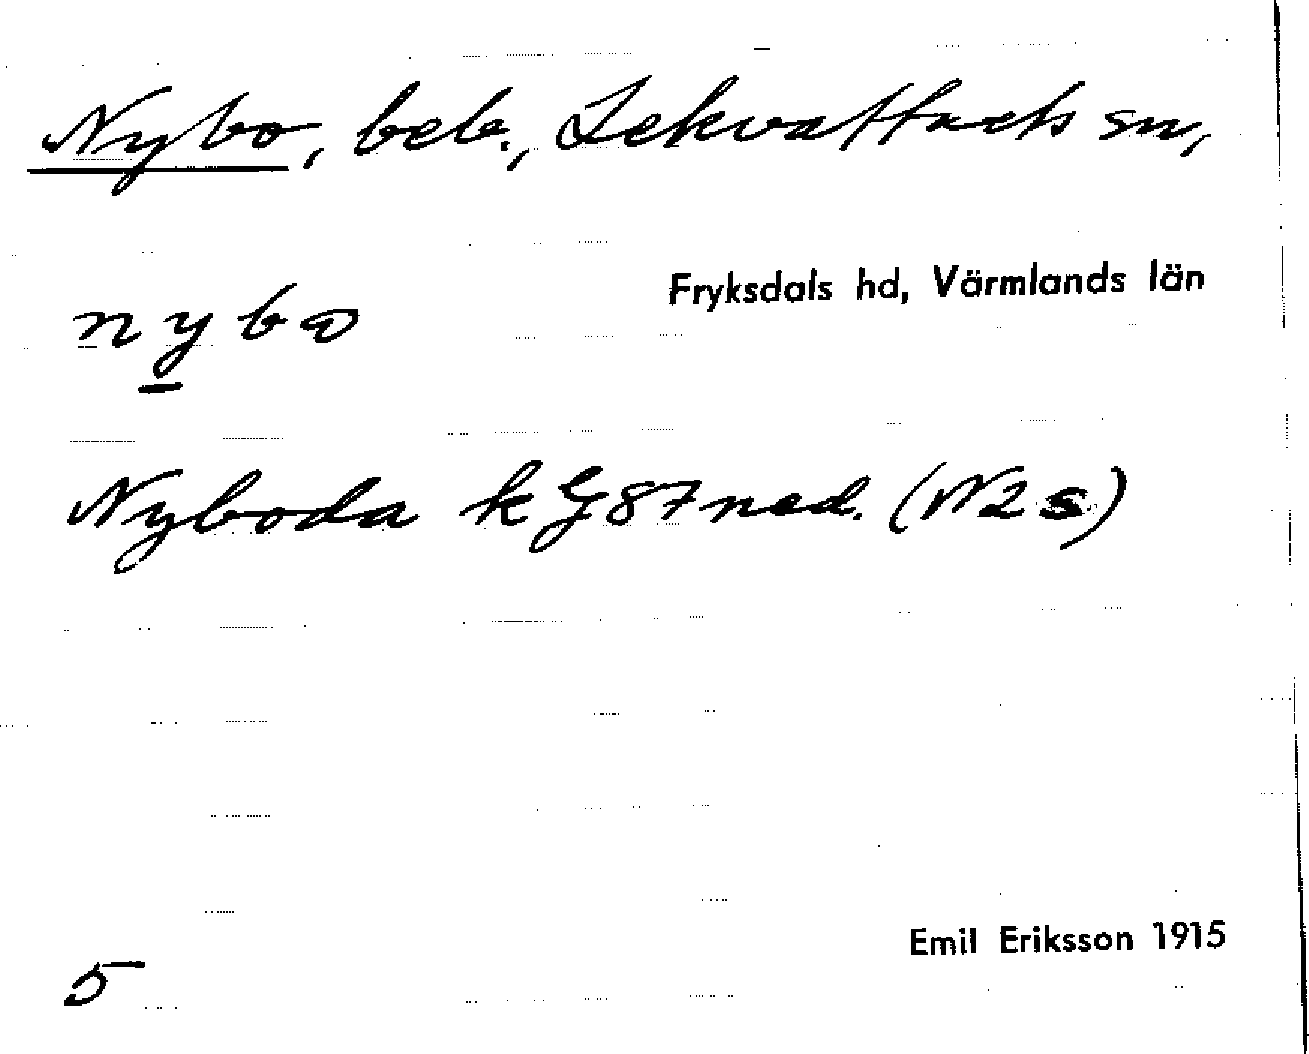 Nybo, beb., Lekvattnets sn,
Fryksdals hd, Värmlands län
nybo
Nyboda k G 87 ned. (N2s)
Emil Eriksson 1915
5